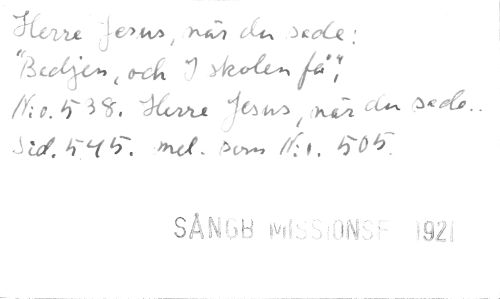 Herre Jesus, när du sade:
"Bedjen, och I skolen få",
N:o. 538. Herre Jesus, när du sade..
Sid. 545. mel. som N:o. 505.
SÅNGB MISSIONSF 1921